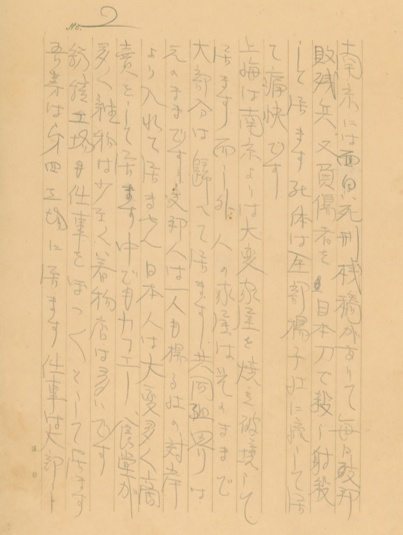 No. 2
南京には面白い死刑桟橋がありて毎日支那
敗残兵又負傷者を日本刀で殺し射殺
して居ます死体は全部揚子江に流して居
て痛快です
上海は南京よりは大変家屋を焼き破壊して
居ます而し外人の家屋は元のままで
大部分は帰って居ます共同租界りは
元のままです支那人は一人も揚子江の対岸
より入れて居ません日本人は大変多く商
売をして居ます中でもカフエー食堂が
多く雑物は少なく着物店は多いです
紡績工場も仕事をぼつぼつとして居ます
吾等は第四工場に居ます仕事は大部